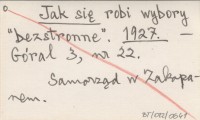 Jak się robi wybory
"bezstronne". 1927. –
Góral 3, nr 22.
Samorząd w Zakopa-
nem.